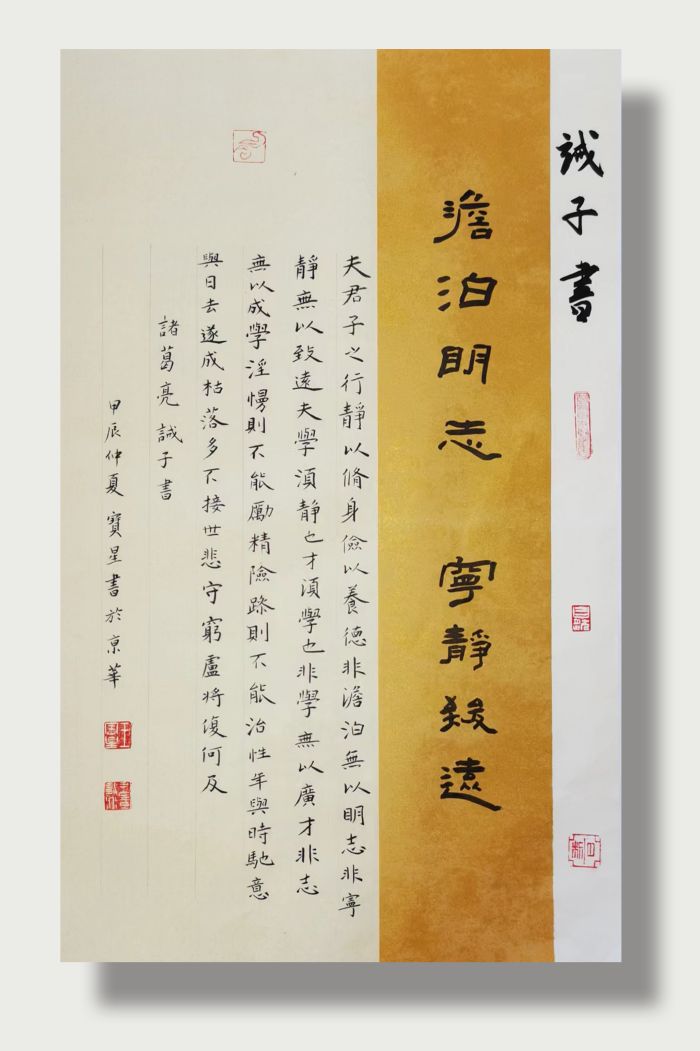 誡子書
澹泊眀志 寧靜致遠
夫君子之行靜以脩身儉以養德非澹泊無以眀志非寧
靜無以致遠夫學須靜也才須學也非學無以廣才非志
無以成學淫慢則不能勵精險躁則不能治性年與時馳意
與日去遂成枯落多不接世悲守窮盧將復何及
諸葛亮誡子書
甲辰仲夏寶星書於京華